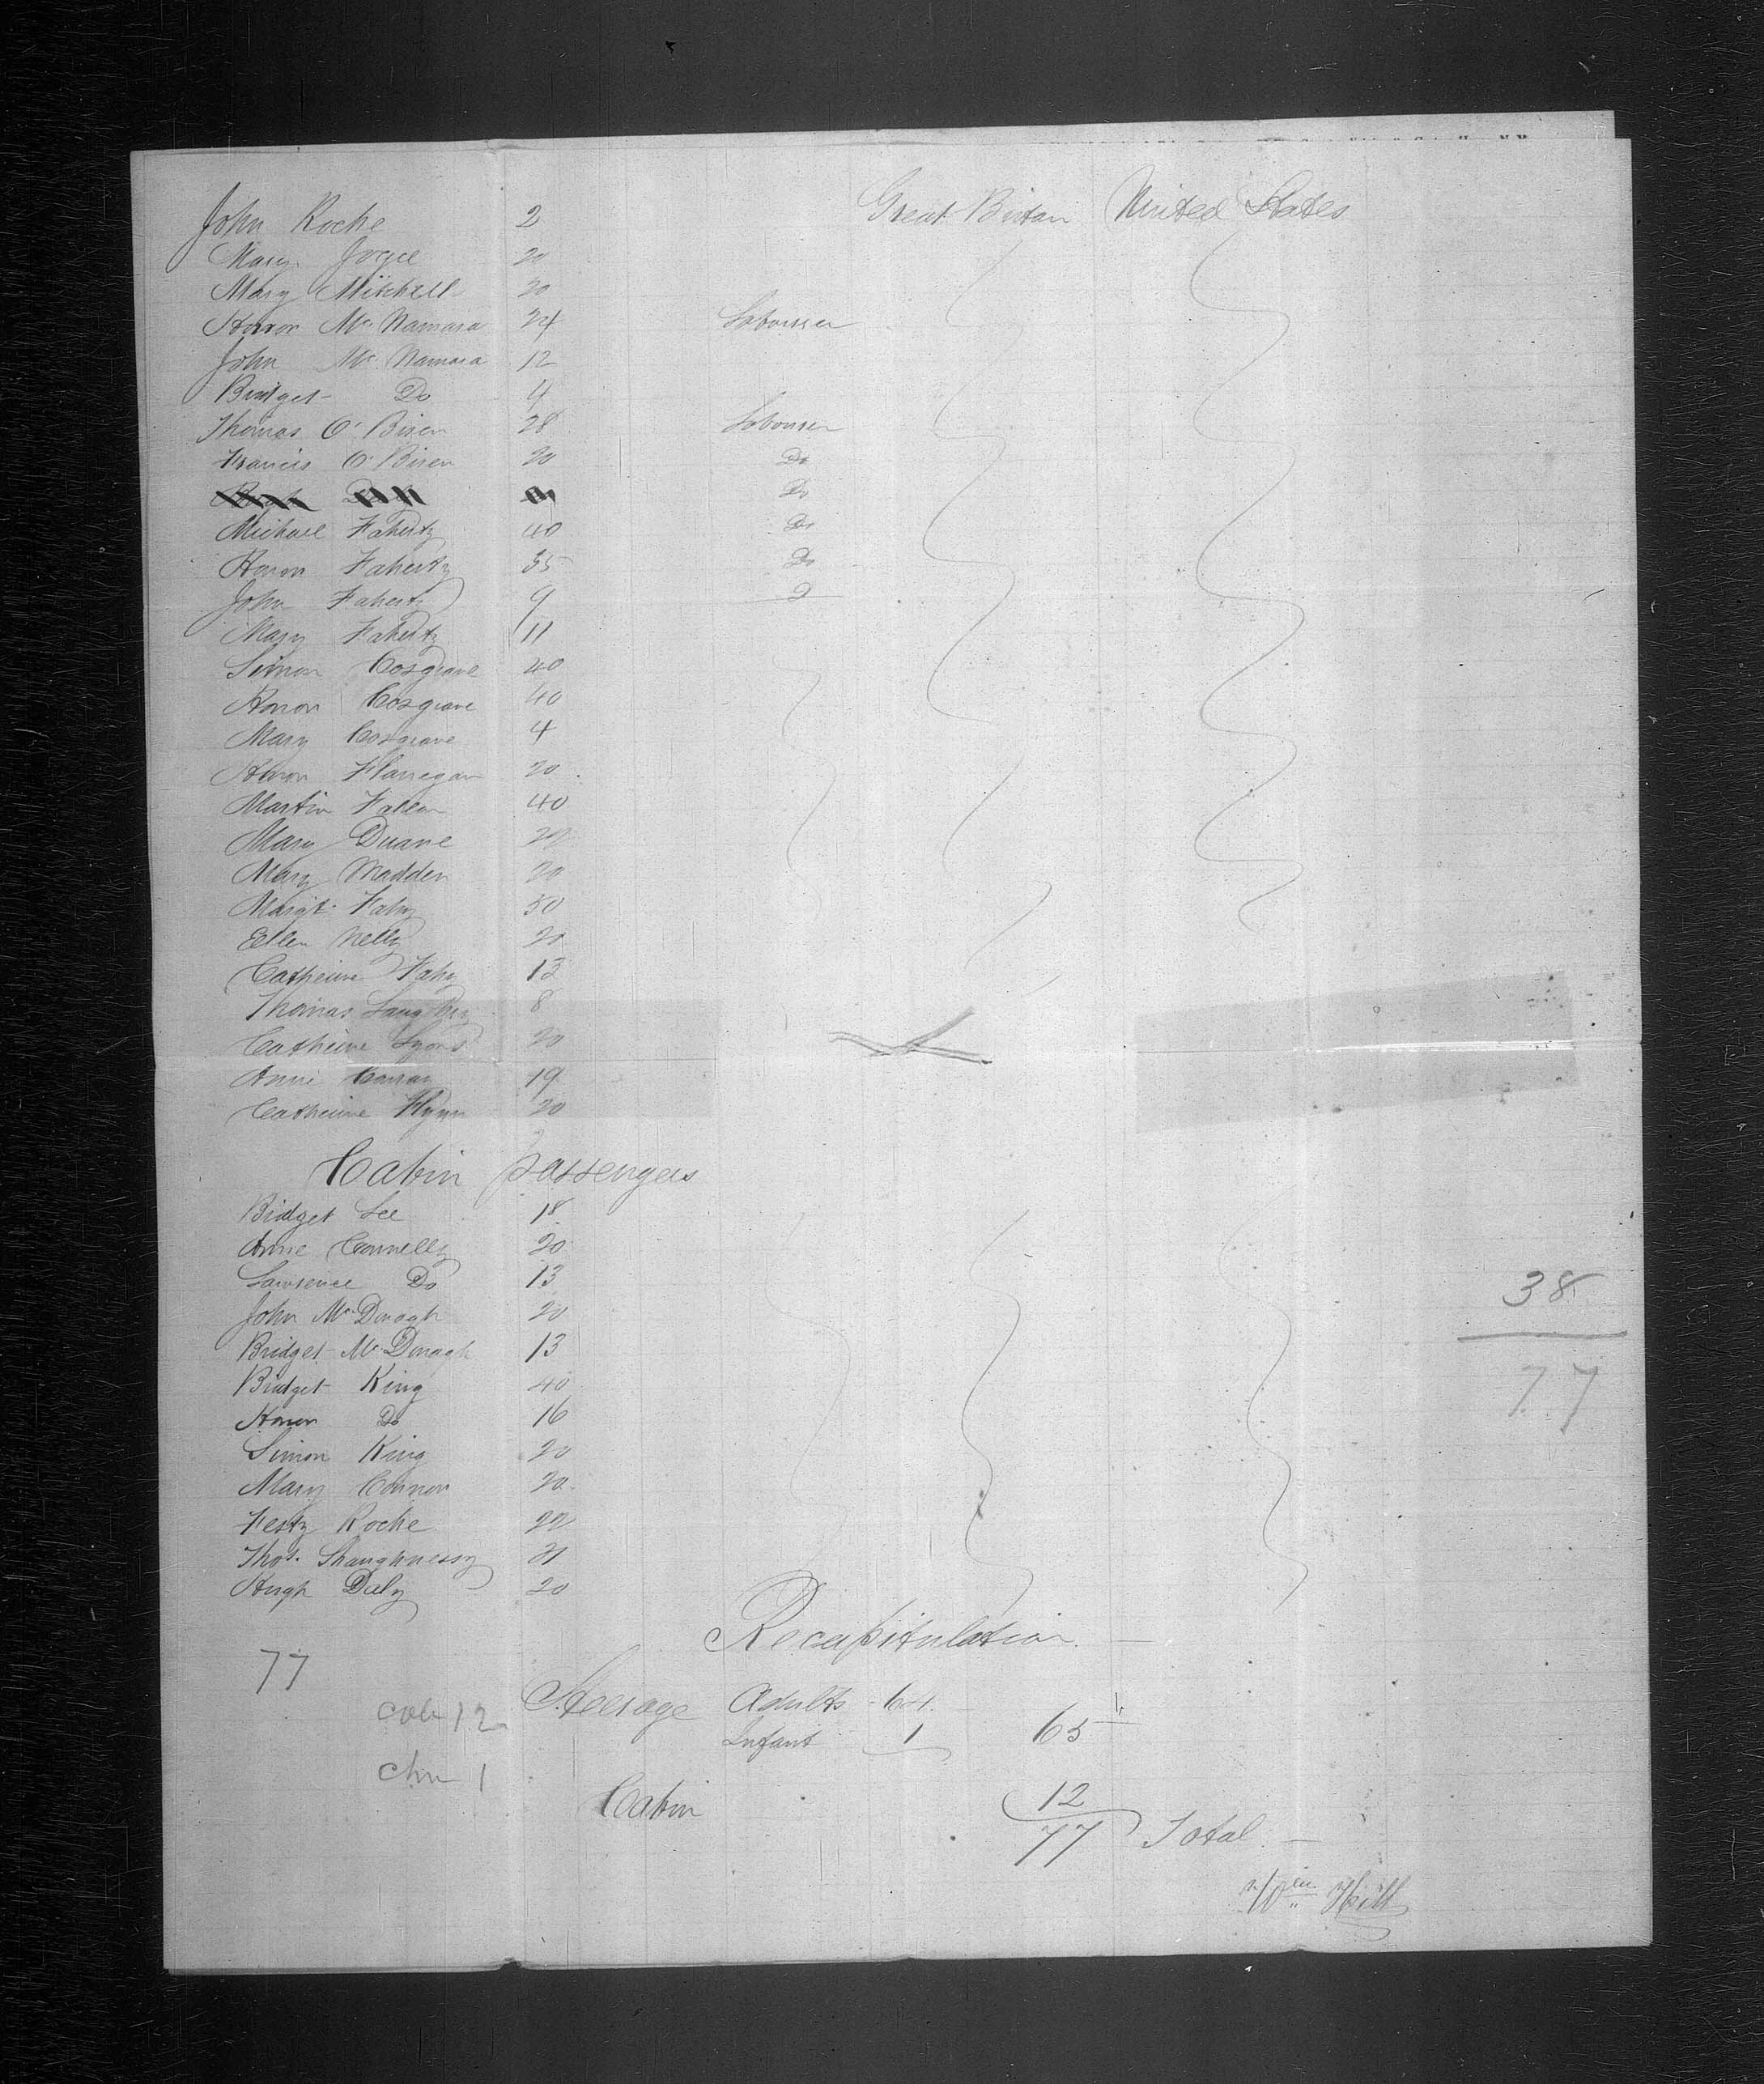 John Roche 2 Great Britan United States
Mary Joyce 20
Mary Mitchell 20
Honor Mc Namara 24 Labourer
John Mc Namara 12
Bridget Do 4
Thomas O' Brien 28 Labourer
Francis O' Brien 20 Do
Do
Michael Faherty 40 Do
Honor Faherty 35 Do
John Faherty 9
Mary Faherty 11
Simon Cosgrave 40
Honor Cosgrave 40
Mary Cosgrave 4
Honor Flanegan 20
Martin Fallon 40
Mary Duane 20
Mary Madden 20
Margt Fahy 50
Ellen Nelly 20
Catherine Fahy 13
Thomas 8
Catherine Lyons 20
Anne 19
Catherine Flynn 20
Cabin passengers
Bridget Lee 18
Anne Connelly 20
Lawrence Do 13
38
John Mc Donagh 20
Bridget Mc Donagh 13
Bridget King 40
77
Honor Do 16
Simon King 20
Mary Connor 20
Festy Roche 22
Thos. Shaughnessy 21
Hugh Daly 20
Recapitulation
77
Steerage Adults - 64
12
Infant 1 65
1
Cabin 12
77 Total
Wm Hill